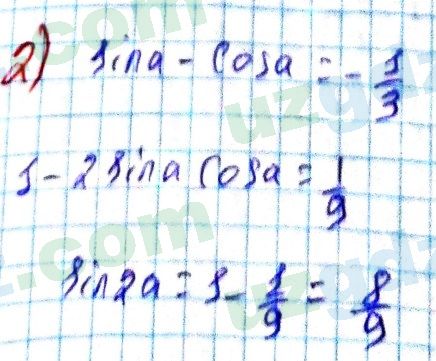 2) sina - cosa = - 1/3
1 - 2 sina cosa = 1/9
sin2a = 1 - 1/9 = 8/9